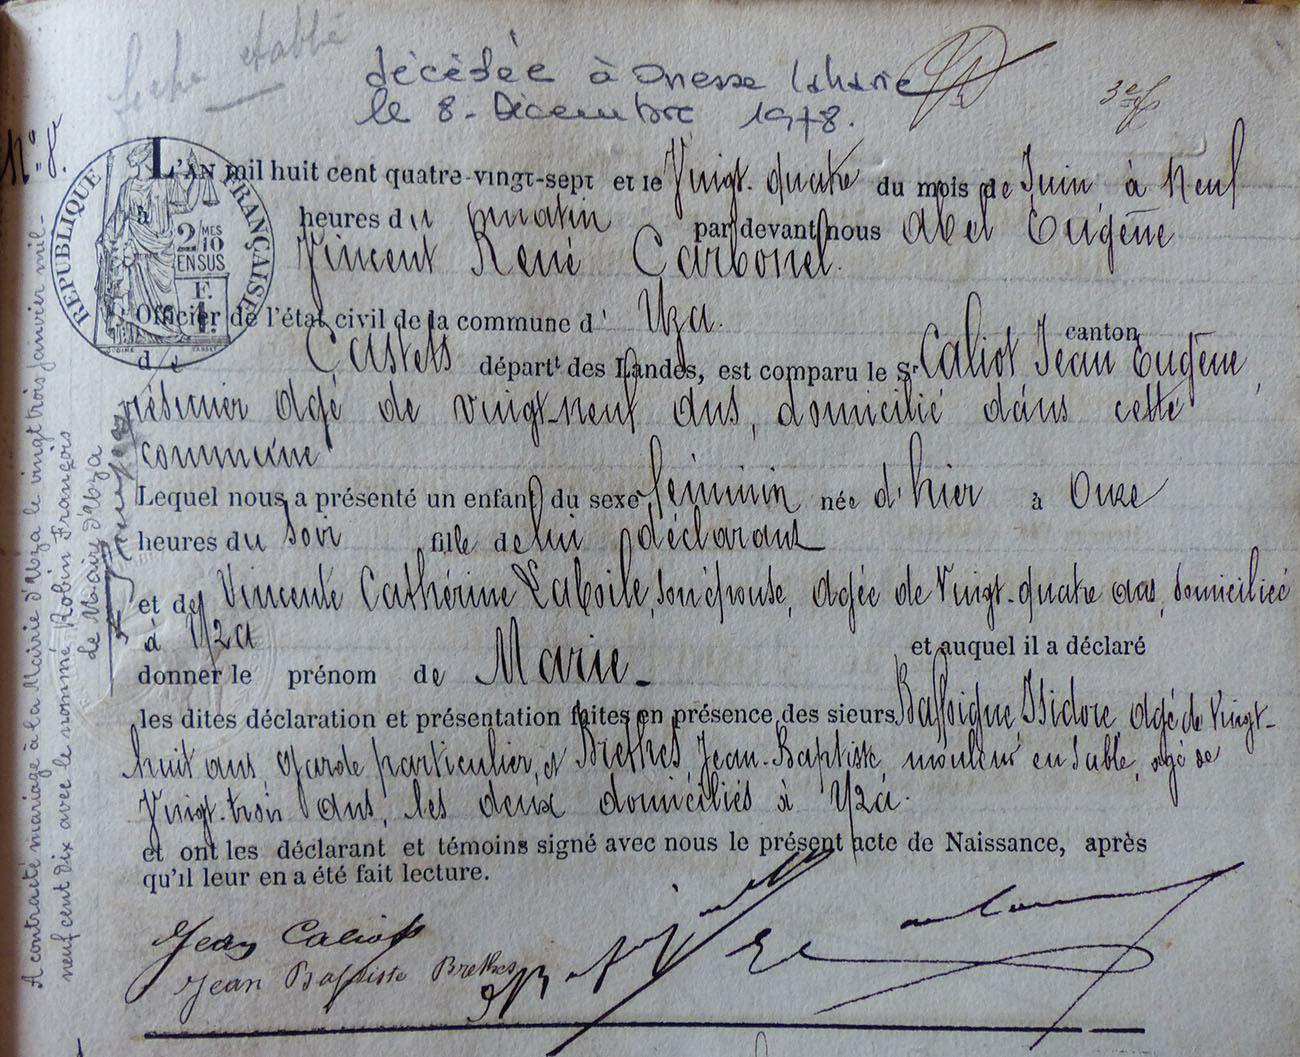 fiche établie
décédée à Onesse Laharie
le 8. Décembre 1978.
3e
N° 8.
RÉPUBLIQUE FRANÇAISE
2/10 MES
EN SUS
1 F.
L'AN mil huit cent quatre-vingt-sept et le Vingt-quatre du mois de Juin à neuf
heures du matin par devant nous Abel Eugène
Vincent René Carbonel.
Officier de l'état civil de la commune d' Uza. canton
de Castets départt des Landes, est comparu le Sr Caliot Jean Eugène,
résinier agé de vingt-neuf ans, domicilié dans cette
commune
Lequel nous a présenté un enfant du sexe féminin née d'hier à Onze
heures du soir fille de lui déclarant
et de Vincente Cathérine Laboile, son épouse, agée de Vingt-quatre ans, domiciliée
à Uza et auquel il a déclaré
donner le prénom de Marie.
les dites déclaration et présentation faites en présence des sieurs Bassigue Isidore, agé de Vingt-
huit ans garde particulier, et Brethes Jean-Baptiste mouleur en sable, agé de
Vingt-trois ans, les deux domiciliés à Uza.
et ont les déclarant et témoins signé avec nous le présent acte de Naissance, après
qu'il leur en a été fait lecture.
Jean Caliot
Jean Baptiste Brethes
A contracté mariage à la Mairie d'Uza le vingt trois janvier mil-
neuf cent dix avec le nommé Robin François
Le Maire d'Uza